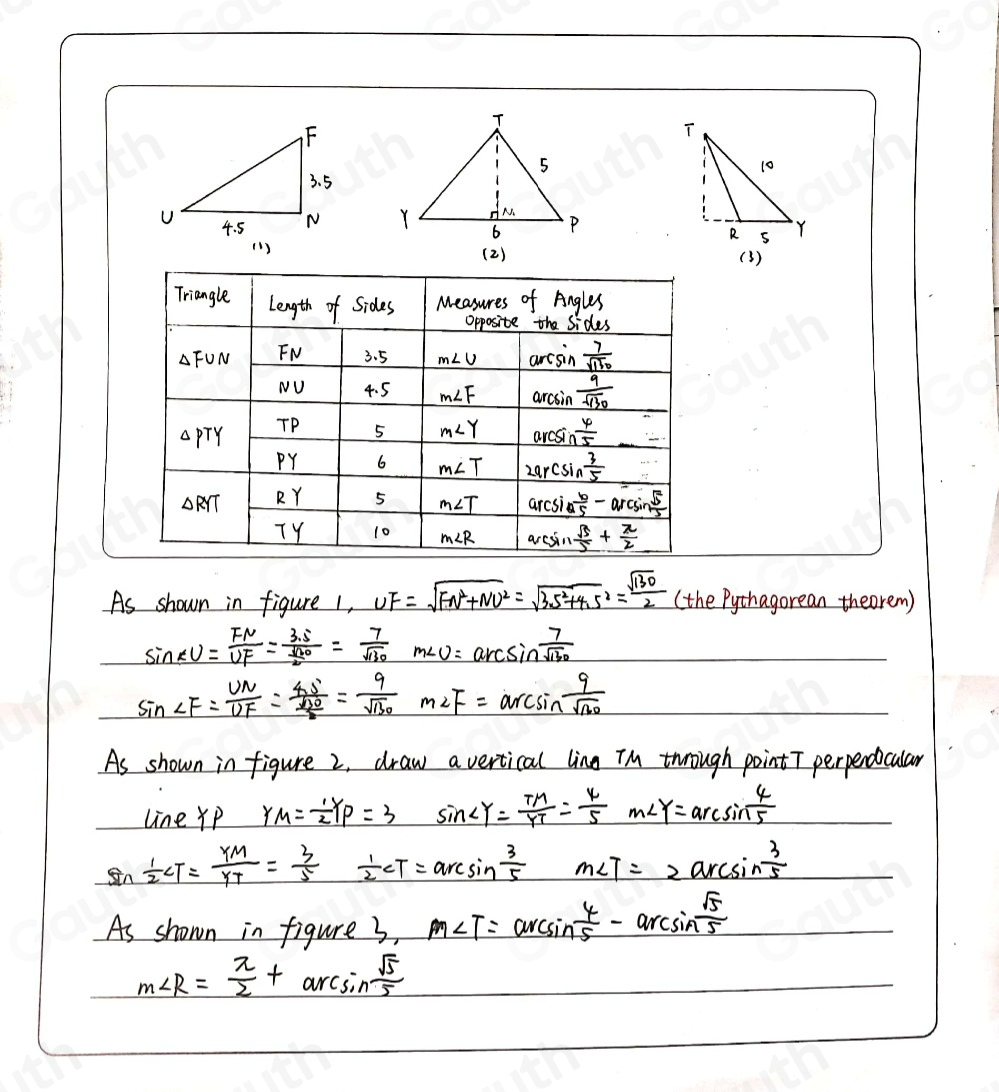 F
3.5
U
4.5
N
(1)
T
5
Y
N.
6
P
(2)
T
10
R 5 Y
(3)
Triangle Length of Sides Measures of Angles Opposite the Sides
△FUN FN 3.5 m∠U arcsin 7/√130
NU 4.5 m∠F arcsin 9/√130
△PTY TP 5 m∠Y arcsin 4/5
PY 6 m∠T 2arcsin 3/5
△RYT RY 5 m∠T - arcsin √5/5
TY 10 m∠R arcsin √5/5 + π/2
As shown in figure 1, UF = √FN²+NU² = √3.5²+4.5² = √130/2 (the Pythagorean theorem)
sin∠U = FN/UF = 3.5/(√130/2) = 7/√130 m∠U = arcsin 7/√130
sin∠F = UN/UF = 4.5/(√130/2) = 9/√130 m∠F = arcsin 9/√130
As shown in figure 2, draw a vertical line TM through point T perpendocular
line YP YM = 1/2 YP = 3 sin∠Y = TM/YT = 4/5 m∠Y = arcsin 4/5
sin 1/2 ∠T = YM/YT = 3/5 1/2 ∠T = arcsin 3/5 m∠T = 2 arcsin 3/5
As shown in figure 3, m∠T = arcsin 4/5 - arcsin √5/5
m∠R = π/2 + arcsin √5/5
Gauth